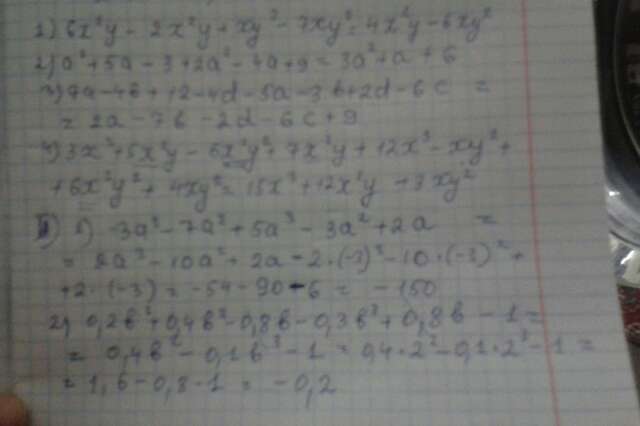 1) 6x²y - 2x²y + xy² - 7xy² = 4x²y - 6xy²
2) a² + 5a - 3 + 2a² - 4a + 9 = 3a² + a + 6
3) 7a - 4b + 12 - 4d - 5a - 3b + 2d - 6c =
= 2a - 7b - 2d - 6c + 9
4) 3x³ + 5x²y - 6x²y² + 7x²y + 12x³ - xy² +
+ 6x²y² + 4xy² = 15x³ + 12x²y + 3xy²
1) -3a³ - 7a² + 5a³ - 3a² + 2a =
= 2a³ - 10a² + 2a = 2·(-3)³ - 10·(-3)² +
+ 2·(-3) = -54 - 90 - 6 = -150
2) 0,2b³ + 0,4b² - 0,8b - 0,3b³ + 0,8b - 1 =
= 0,4b² - 0,1b³ - 1 = 0,4·2² - 0,1·2³ - 1 =
= 1,6 - 0,8 - 1 = -0,2